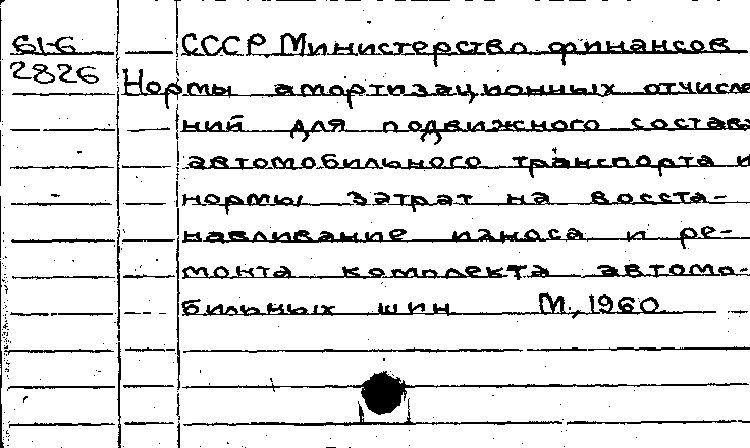 61-6 СССР. Министерство финансов
2826 Нормы амортизационных отчисле
ний для подвижного состава
автомобильного транспорта и
нормы затрат на восста-
навливание износа и ре-
монта комплекта автомо-
бильных шин М., 1960